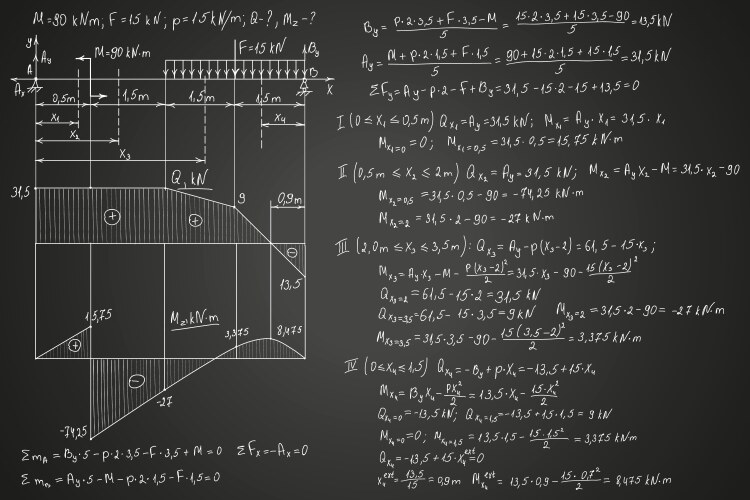 M=90 kNm; F=15 kN; p=15 kN/m; Q-?, Mz-?
y
Ay
M=90 kN·m
F=15 kN
By
A
B
Ax
x
0,5m
1,5m
1,5m
1,5m
x₁
x₄
x₂
x₃
Q, kN
31,5
9
0,9m
+
+
−
13,5
15,75
Mz, kN·m
3,375
8,475
+
−
-27
-74,25
Σm_A = By·5-p·2·3,5-F·3,5+M=0 ΣFx=-Ax=0
Ay·5-M-p·2·1,5-F·1,5=0
By = (p·2·3,5+F·3,5-M)/5 = (15·2·3,5+15·3,5-90)/5 = 13,5kN
Ay = (M+p·2·1,5+F·1,5)/5 = (90+15·2·1,5+15·1,5)/5 = 31,5 kN
ΣFy=Ay-p·2-F+By=31,5-15·2-15+13,5=0
I (0≤x₁≤0,5m) Qx₁=Ay=31,5 kN; Mx₁=Ay·x₁=31,5·x₁
Mx₁=0 =0; Mx₁=0,5 =31,5·0,5=15,75 kN·m
II (0,5m≤x₂≤2m) Qx₂=Ay=31,5 kN; Mx₂=Ay x₂-M=31,5·x₂-90
Mx₂=0,5 =31,5·0,5-90=-74,25 kN·m
Mx₂=2 =31,5·2-90=-27 kN·m
III (2,0m≤x₃≤3,5m): Qx₃=Ay-p(x₃-2)=61,5-15·x₃;
Mx₃=Ay·x₃-M-p(x₃-2)²/2=31,5·x₃-90-15(x₃-2)²/2
Qx₃=2 =61,5-15·2=31,5 kN
Qx₃=3,5=61,5-15·3,5=9 kN Mx₃=2 =31,5·2-90=-27 kN·m
Mx₃=3,5 =31,5·3,5-90-15(3,5-2)²/2=3,375 kN·m
IV (0≤x₄≤1,5) Qx₄=-By+p·x₄=-13,5+15·x₄
Mx₄=By x₄-px₄²/2=13,5·x₄-15·x₄²/2
Qx₄=0 =-13,5 kN; Qx₄=1,5=-13,5+15·1,5=9 kN
Mx₄=0=0; Mx₄=1,5=13,5·1,5-15·1,5²/2=3,375 kNm
Qx₄=-13,5+15·x₄ᵉˣᵗ=0
x₄ᵉˣᵗ=13,5/15=0,9m Mx₄ᵉˣᵗ=13,5·0,9-15·0,7²/2=8,475 kN·m